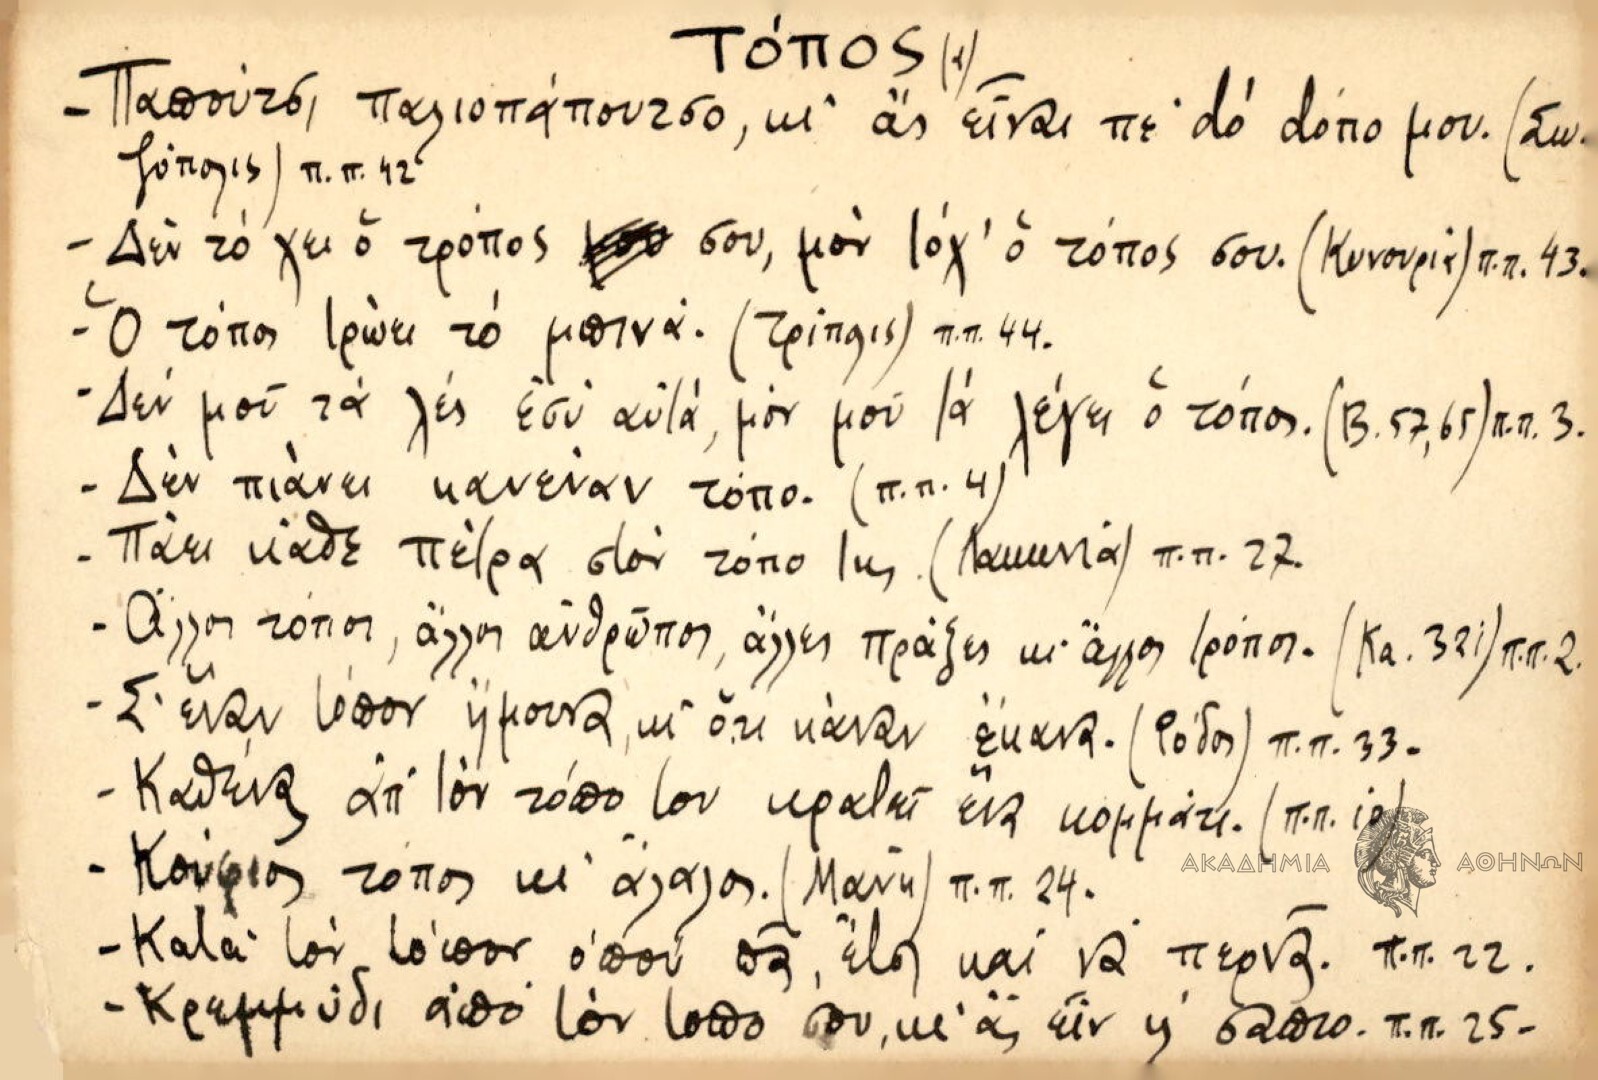 Τόπος (1)
- Παπούτσι παλιοπάπουτσο, κι' ἄς εἶναι πὲ dό dόπο μου. (Σω-
ζόπολις) π.π. 42
- Δέν τό χει ὁ τρόπος σου, μόν τόχ' ὁ τόπος σου. (Κυνουρία) π.π. 43.
- Ὁ τόπος τρώει τό μπινά. (Τρίπολις) π.π. 44.
- Δέν μοῦ τά λές ἐσύ αὐτά, μόν μοῦ τά λέγει ὁ τόπος. (Β. 57, 65) π.π. 3.
- Δέν πιάνει κανέναν τόπο. (π.π. 4)
- Πάει κάθε πέτρα στόν τόπο της. (Λακωνία) π.π. 27.
- Ἄλλοι τόποι, ἄλλοι ἀνθρῶποι, ἄλλες πράξες κι' ἄλλοι τρόποι. (Κα. 321) π.π. 2.
- Σ' ἕναν τόπον ἤμουνα, κι' ὅ,τι κάναν ἔκανα. (Ρόδος) π.π. 33.
- Καθένας ἀπ' τόν τόπο του κρατεῖ ἕνα κομμάτι. (π.π. 10)
- Κούφιος τόπος κι' ἄλαλος. (Μάνη) π.π. 24.
- Κατά τόν τόπον ὁπού πᾶς, ἔτσι καί νά περνᾶς. π.π. 22.
- Κρεμμύδι ἀπό τόν τόπο σου, κι' ἄς εἶν κι σάπιο. π.π. 25-
ΑΚΑΔΗΜΙΑ ΑΘΗΝΩΝ